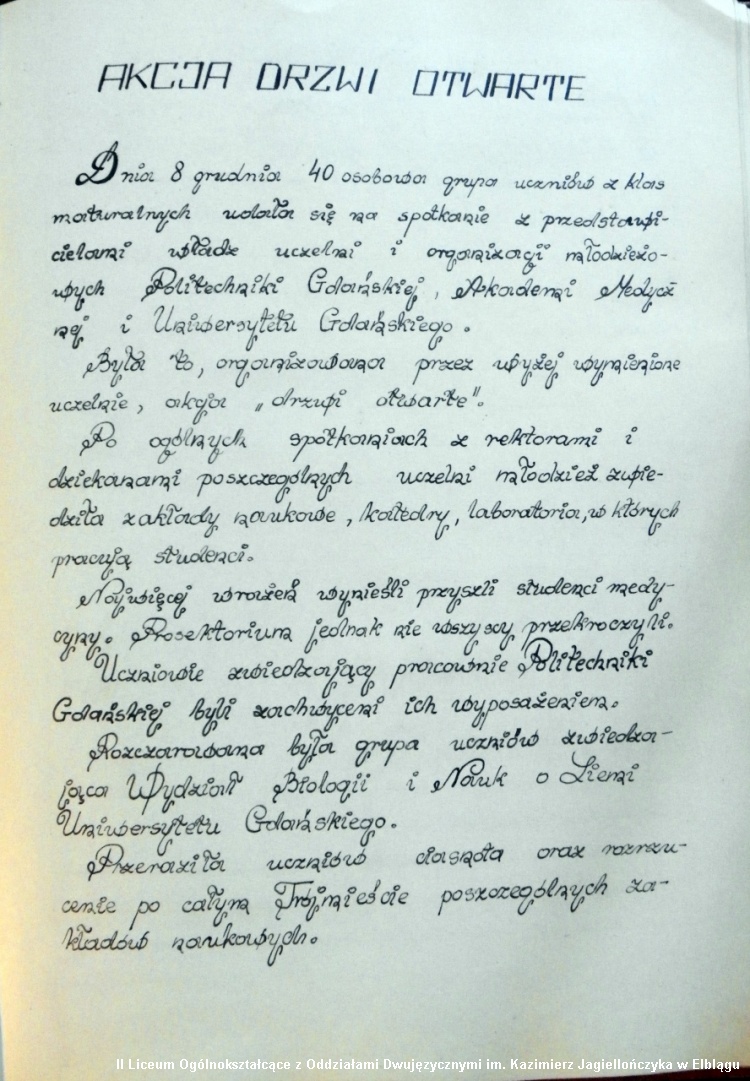 AKCJA DRZWI OTWARTE
Dnia 8 grudnia 40 osobowa grupa uczniów z klas
maturalnych udała się na spotkanie z przedstawi-
cielami władz uczelni i organizacji młodzieżo-
wych Politechniki Gdańskiej, Akademi Medycz
nej i Uniwersytetu Gdańskiego.
Była to, organizowana przez wyżej wymienione
uczelnie, akcja „drzwi otwarte".
Po ogólnych spotkaniach z rektorami i
dziekanami poszczególnych uczelni młodzież zwie-
dziła zakłady naukowe, katedry, laboratoria, w których
pracują studenci.
Najwięcej wrażeń wynieśli przyszli studenci medy-
cyny. Prosektorium jednak nie wszyscy przekroczyli.
Uczniowie zwiedzający pracownie Politechniki
Gdańskiej byli zachwyceni ich wyposażeniem.
Rozczarowana była grupa uczniów zwiedza-
jąca Wydział Biologii i Nauk o Ziemi
Uniwersytetu Gdańskiego.
Przeraziła uczniów ciasnota oraz rozrzu-
cenie po całym Trójmieście poszczególnych za-
kładów naukowych.
II Liceum Ogólnokształcące z Oddziałami Dwujęzycznymi im. Kazimierz Jagiellończyka w Elblągu